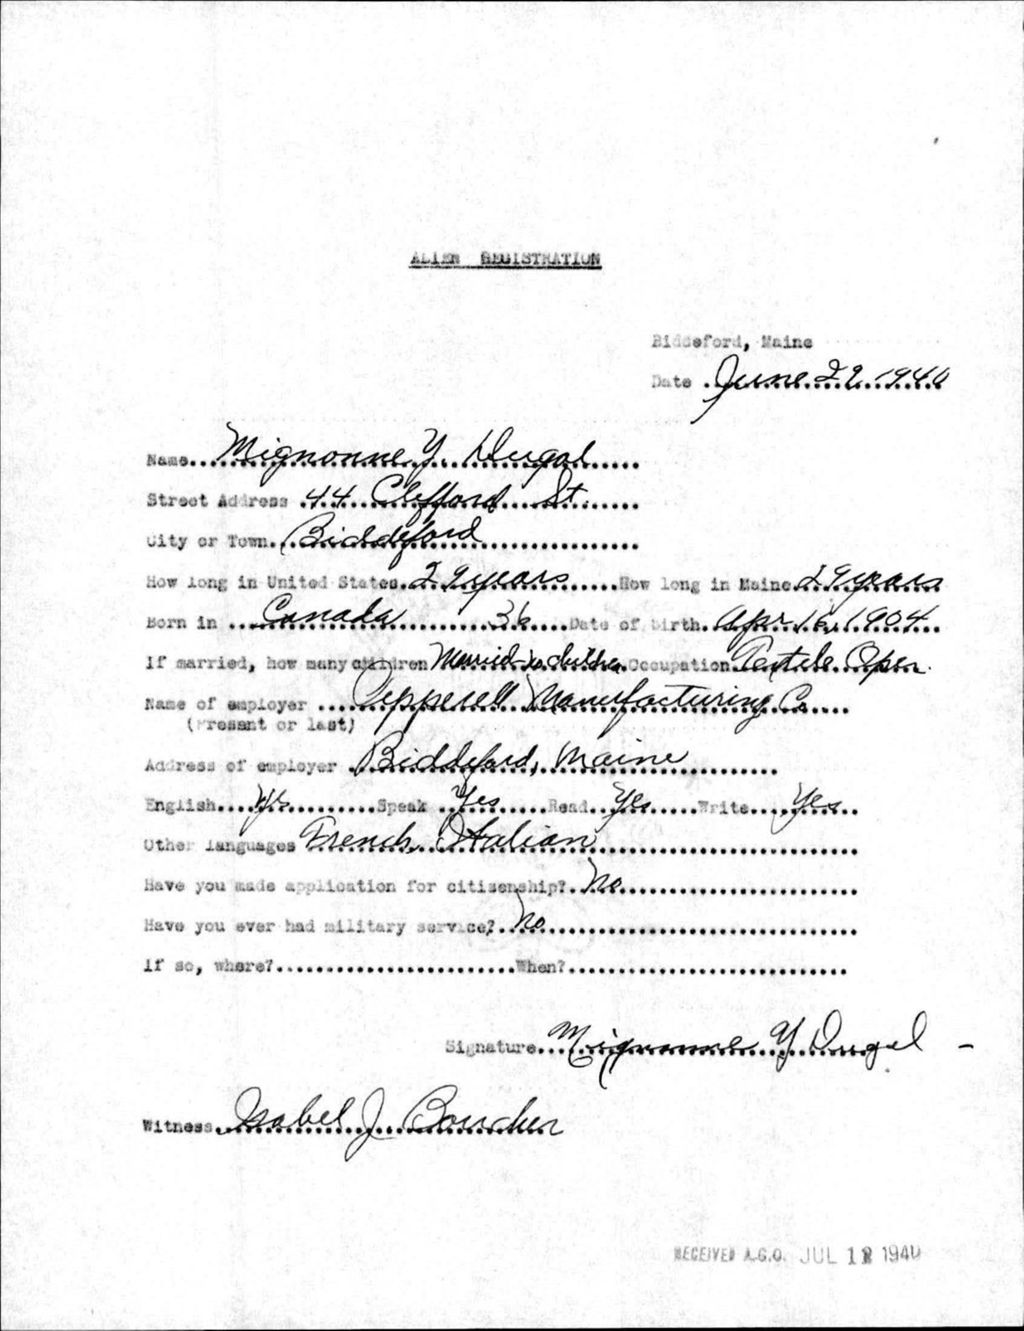 ALIEN REGISTRATION
Biddeford, Maine
Date June 29 1940
Name Mignonne Y Dugal
Street Address 44 Clifford St.
City or Town Biddeford
How long in United States 29 years How long in Maine 29 years
Born in Canada 36 Date of birth Apr 16, 1904
If married, how many children Married no children Occupation Textile Oper.
Name of employer Pepperell Manufacturing Co
(Present or last)
Address of employer Biddeford, Maine
English Yes Speak Yes Read Yes Write Yes
Other languages French, Italian
Have you made application for citizenship? No
Have you ever had military service? No
If so, where? When?
Signature Mignonne Y Dugal
Witness Isabel J. Boucher
RECEIVED A.G.O. JUL 12 1940